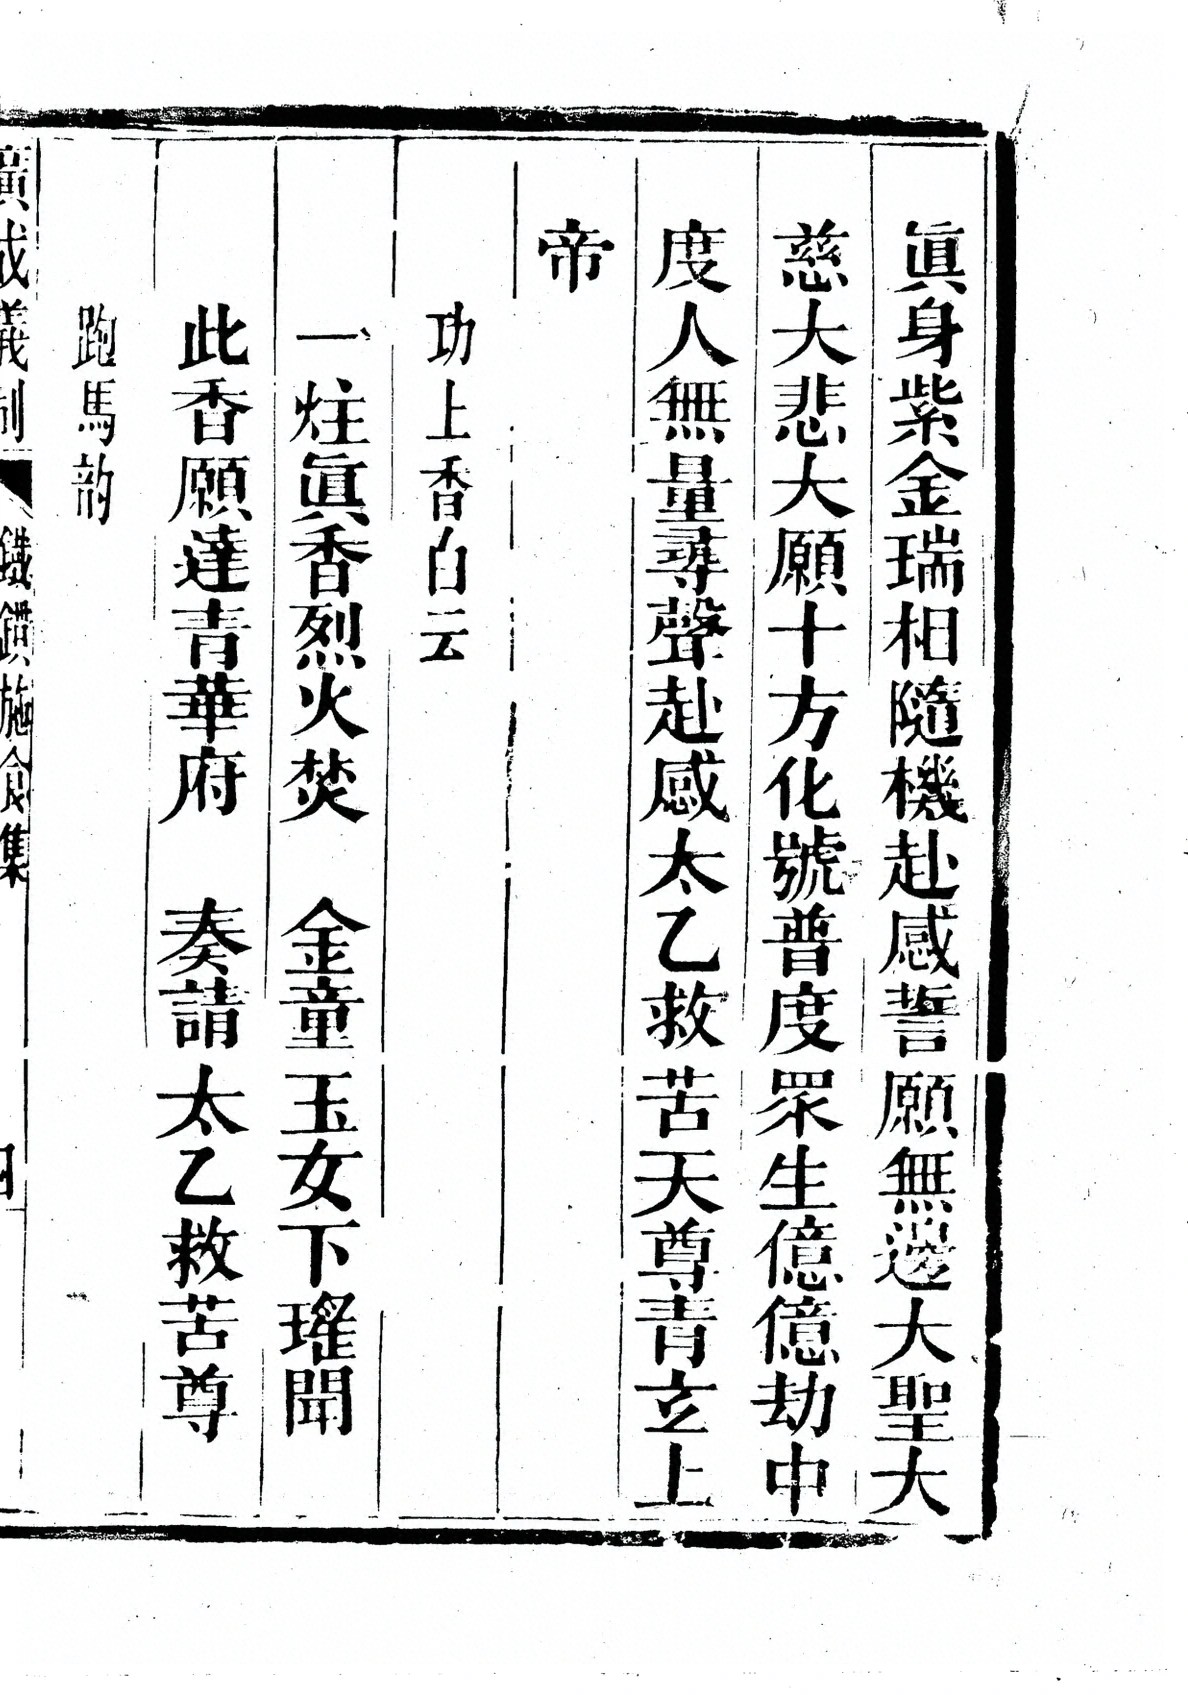 眞身紫金瑞相隨機赴感誓願無邊大聖大
慈大悲大願十方化號普度眾生億億劫中
度人無量尋聲赴感太乙救苦天尊青玄上
帝
功上香白云
一炷眞香烈火焚　金童玉女下瑤聞
此香願達青華府　奏請太乙救苦尊
跑馬韵
廣成儀制　鐵鑽施食集　四